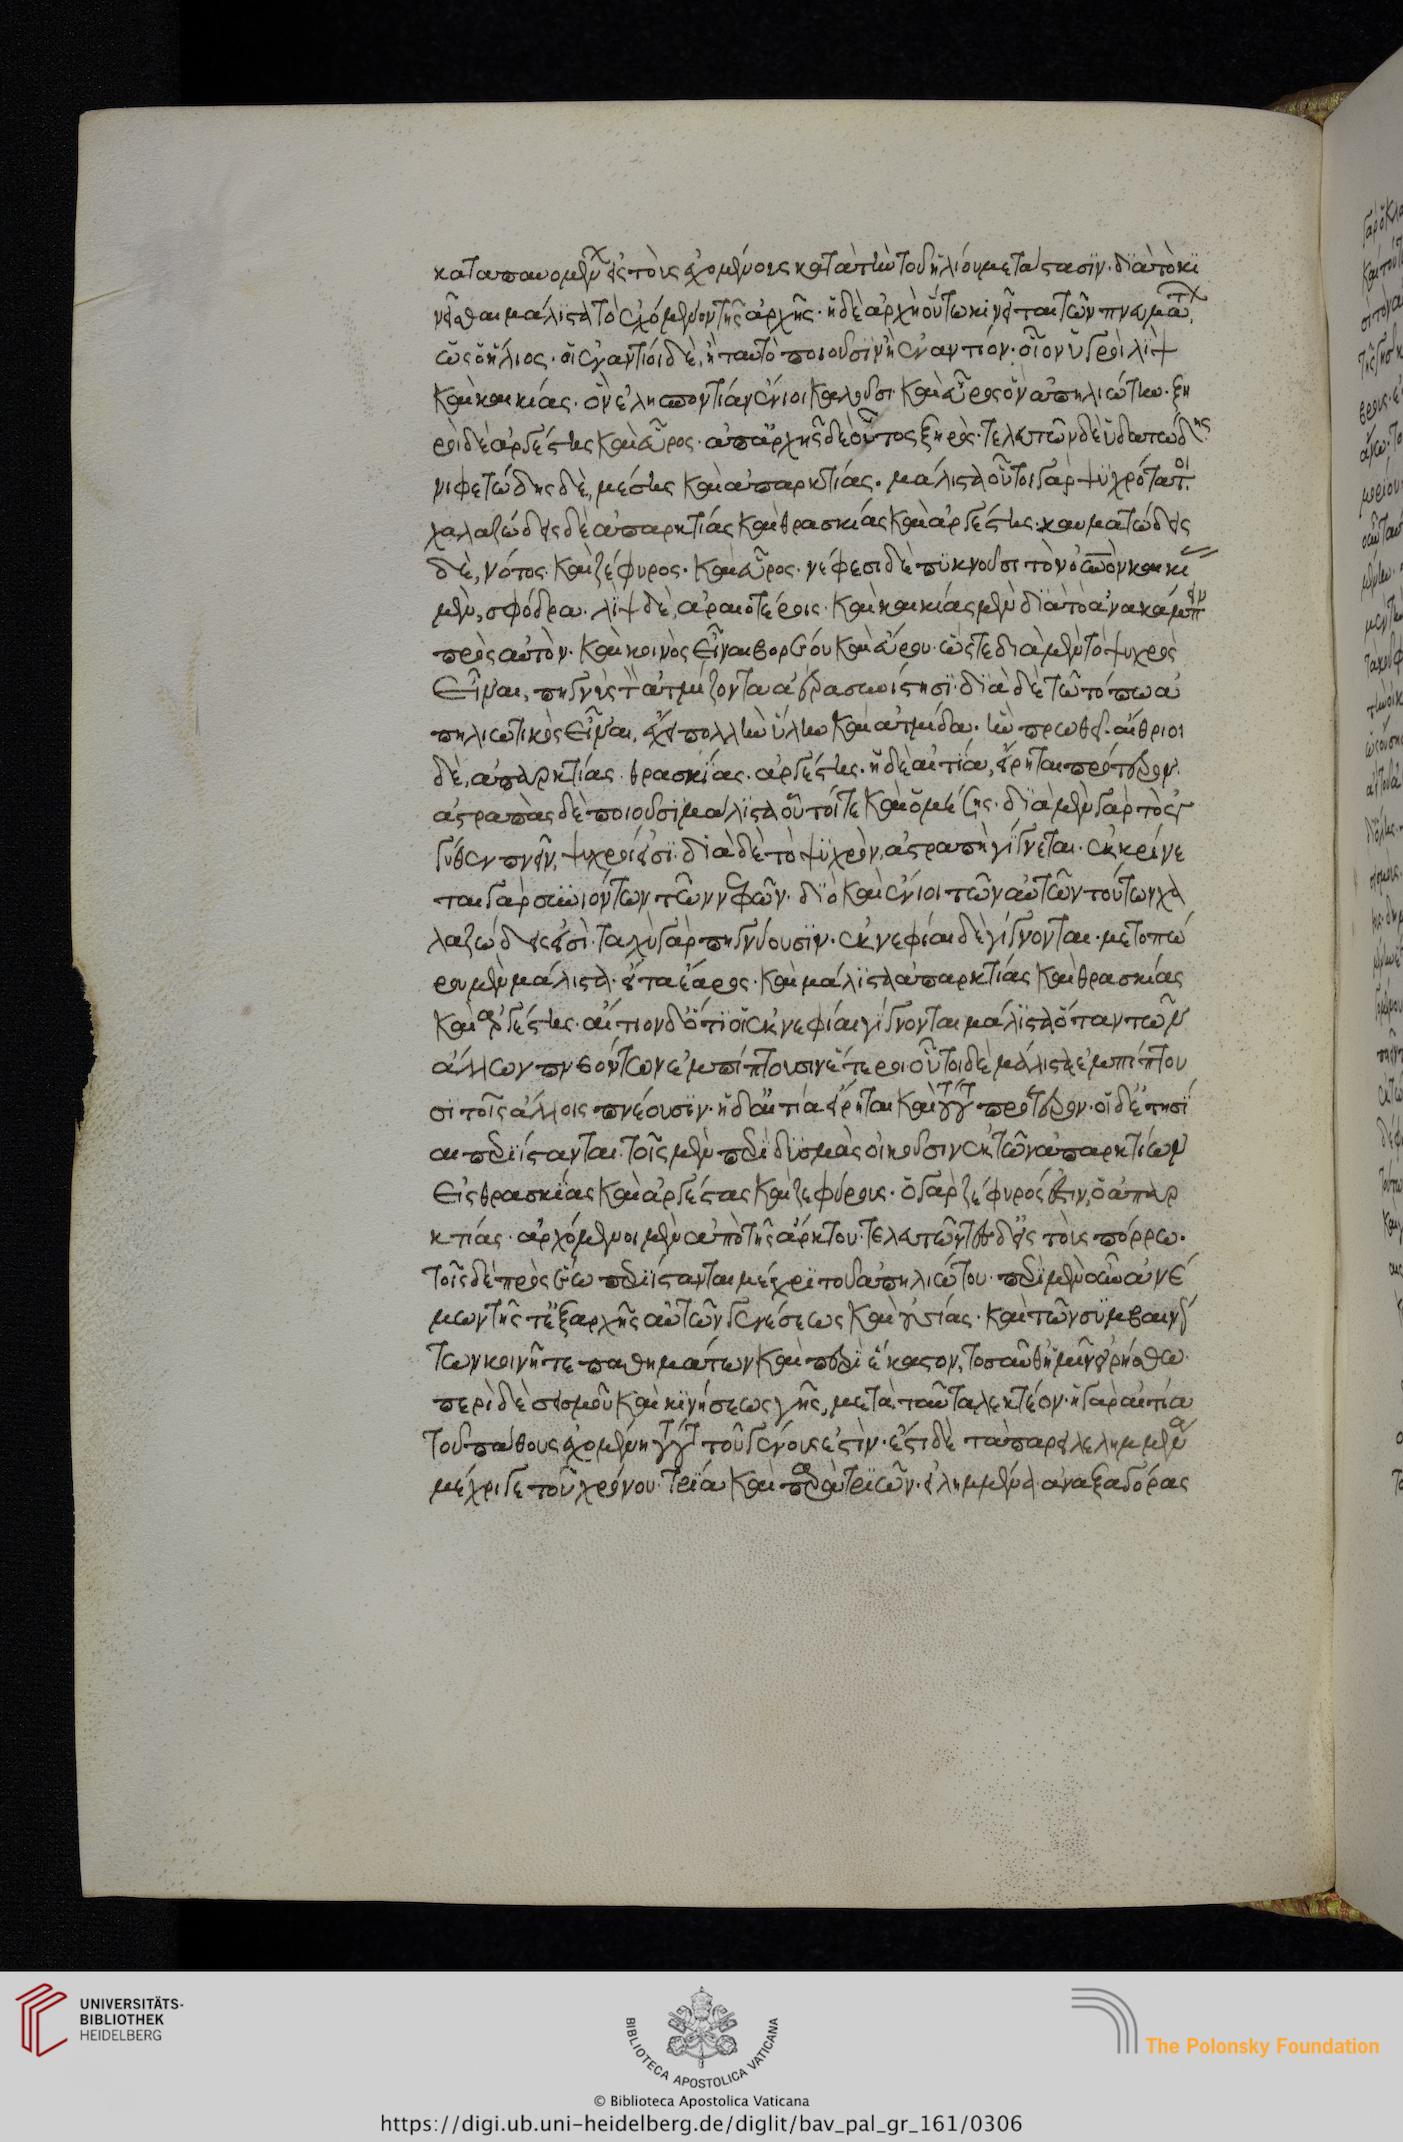 καταπαυομένων εἰς τοὺς ἐχομένους κατὰ τὴν τοῦ ἡλίου μετάστασιν· διὰ τὸ κι
νεῖσθαι μάλιστα τὸ ἐχόμενον τῆς ἀρχῆς· ἡ δὲ ἀρχὴ οὕτω κινεῖται τῶν πνευμάτων,
ὡς ὁ ἥλιος· οἱ ἐναντίοι δὲ, ἢ ταυτὸ ποιοῦσιν ἢ ἐναντίον· οἷον ὑγροὶ λὶψ
καὶ καικίας· ὃν ἑλησποντίαν ἔνιοι καλοῦσι· καὶ εὖρος ὃν ἀπηλιώτην· ξη
ροὶ δὲ ἀργέστης καὶ εὖρος· ἀπαρχῆς δὲ οὗτος ξηρὸς· τελευτῶν δὲ ὑδατώδης
νιφετώδης δὲ, μέσης καὶ ἀπαρκτίας· μάλιστα οὗτοι γὰρ ψυχρότατοι·
χαλαζώδεις δὲ ἀπαρκτίας καὶ θρασκίας καὶ ἀργέστης· καυματώδεις
δὲ, νότος καὶ ζέφυρος· καὶ εὖρος· νέφεσι δὲ πυκνοῦσι τὸν οὐρανὸν καικίας
μὲν, σφόδρα· λὶψ δὲ, ἀραιοτέροις· καὶ καικίας μὲν διὰ τὸ ἀνακάμπτειν
πρὸς αὐτὸν· καὶ κοινὸς εἶναι βορέου καὶ εὔρου· ὥστε διὰ μὲν τὸ ψυχρὸς
εἶναι, πηγνὺς τὸν ἀτμίζοντα ἀέρα συνίστησι· διὰ δὲ τῶ τόπω ἀ
πηλιωτικὸς εἶναι, ἔχει πολλὴν ὕλην καὶ ἀτμίδα· ἣν προωθεῖ· αἴθριοι
δὲ, ἀπαρκτίας· θρασκίας· ἀργέστης· ἡ δὲ αἰτία, εἴρηται πρότερον·
ἀστραπὰς δὲ ποιοῦσι μάλιστα οὗτοί τε καὶ ὁ μέσης· διὰ μὲν γὰρ τὸ ἐγ
γύθεν πνεῖν, ψυχροί εἰσι· διὰ δὲ τὸ ψυχρὸν, ἀστραπὴ γίγνεται· ἐκκρίνε
ται γὰρ συνιόντων τῶν νεφῶν· διὸ καὶ ἔνιοι τῶν αὐτῶν τούτων χα
λαζώδεις εἰσὶ· ταχὺ γὰρ πηγνύουσιν· ἐκνεφίαι δὲ γίγνονται· μετοπώ
ρου μὲν μάλιστα· εἶτα ἔαρος· καὶ μάλιστα ἀπαρκτίας καὶ θρασκίας
καὶ ἀργέστης· αἴτιον δ' ὅτι οἱ ἐκνεφίαι γίγνονται μάλιστα ὅταν τῶν
ἄλλων πνεόντων ἐμπίπτουσιν ἕτεροι οὗτοι δὲ μάλιστα ἐμπίπτου
σι τοῖς ἄλλοις πνέουσιν· ἡ δ' αἰτία εἴρηται καὶ τούτου πρότερον· οἱ δ' ἐτησί
αι περιίστανται· τοῖς μὲν περὶ δυσμὰς οἰκοῦσιν ἐκ τῶν ἀπαρκτίων
εἰς θρασκίας καὶ ἀργέστας καὶ ζεφύρους· ὁ γὰρ ζέφυρός ἐστιν, ὁ ἀπαρ
κτίας· ἀρχόμενοι μὲν ἀπὸ τῆς ἄρκτου· τελευτῶντες δ' εἰς τοὺς πόρρω·
τοῖς δὲ πρὸς ἕω περιίστανται μέχρι τοῦ ἀπηλιώτου· περὶ μὲν οὖν ἀνέ
μων τῆς τ' ἐξαρχῆς αὐτῶν γενέσεως καὶ οὐσίας· καὶ τῶν συμβαινόν
των κοινῇ τε παθημάτων καὶ περὶ ἕκαστον, τοσαῦθ' ἡμῖν εἰρήσθω·
περὶ δὲ σεισμοῦ καὶ κινήσεως γῆς, μετὰ ταῦτα λεκτέον· ἡ γὰρ αἰτία
τοῦ πάθους ἐχομένη τούτου τοῦ γένους ἐστὶν· ἔστι δὲ τὰ παρειλημμένα
μέχρι γε τοῦ χρόνου· τρία καὶ παρὰ τριῶν· εἰλημμένα· ἀναξαγόρας
UNIVERSITÄTS-
BIBLIOTHEK
HEIDELBERG
BIBLIOTECA APOSTOLICA VATICANA
© Biblioteca Apostolica Vaticana
The Polonsky Foundation
https://digi.ub.uni-heidelberg.de/diglit/bav_pal_gr_161/0306